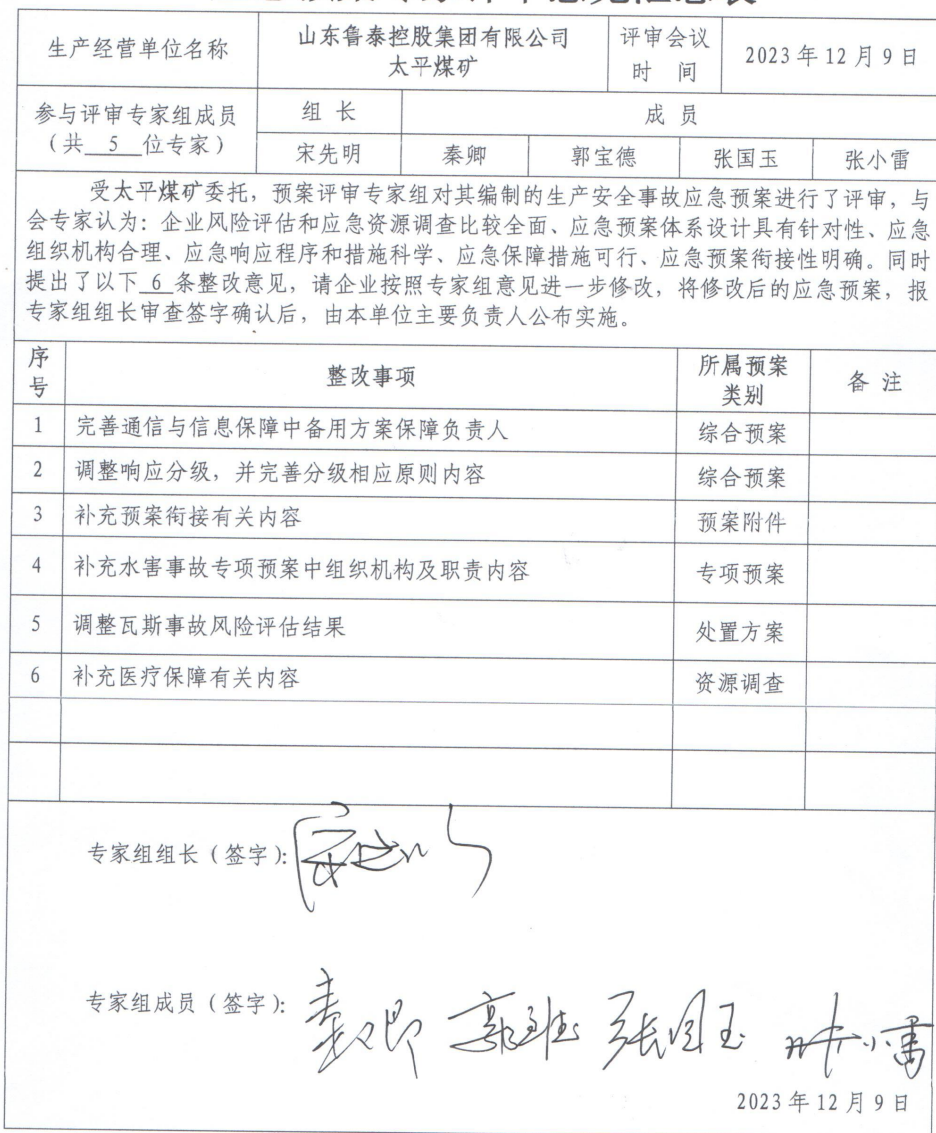 生产经营单位名称
山东鲁泰控股集团有限公司
太平煤矿
评审会议
时 间
2023年12月9日
参与评审专家组成员
（共 5 位专家）
组 长
成 员
宋先明
秦卿
郭宝德
张国玉
张小雷
受太平煤矿委托，预案评审专家组对其编制的生产安全事故应急预案进行了评审，与
会专家认为：企业风险评估和应急资源调查比较全面、应急预案体系设计具有针对性、应急
组织机构合理、应急响应程序和措施科学、应急保障措施可行、应急预案衔接性明确。同时
提出了以下 6 条整改意见，请企业按照专家组意见进一步修改，将修改后的应急预案，报
专家组组长审查签字确认后，由本单位主要负责人公布实施。
序号
整改事项
所属预案
类别
备 注
1 完善通信与信息保障中备用方案保障负责人 综合预案
2 调整响应分级，并完善分级相应原则内容 综合预案
3 补充预案衔接有关内容 预案附件
4 补充水害事故专项预案中组织机构及职责内容 专项预案
5 调整瓦斯事故风险评估结果 处置方案
6 补充医疗保障有关内容 资源调查
专家组组长（签字）：宋先明
专家组成员（签字）：秦卿 郭宝德 张国玉 张小雷
2023年12月9日